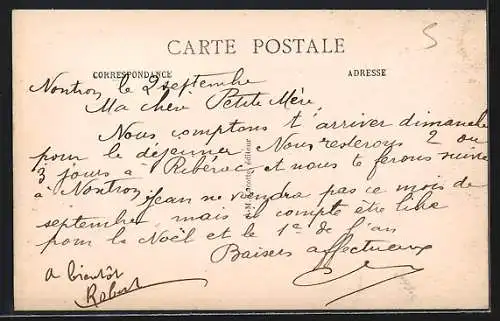 CARTE POSTALE
CORRESPONDANCE
ADRESSE
Nontron le 2 septembre
Ma chère Petite Mère
Nous comptons t'arriver dimanche
pour le déjeuner Nous resterons 2 ou
3 jours à Ribérac et nous te ferons suivre
à Nontron Jean ne viendra pas ce mois de
septembre mais compte être libre
pour la Noël et le 1er de l'an
Baisers affectueux
a bientôt
Robert
éditeur
5